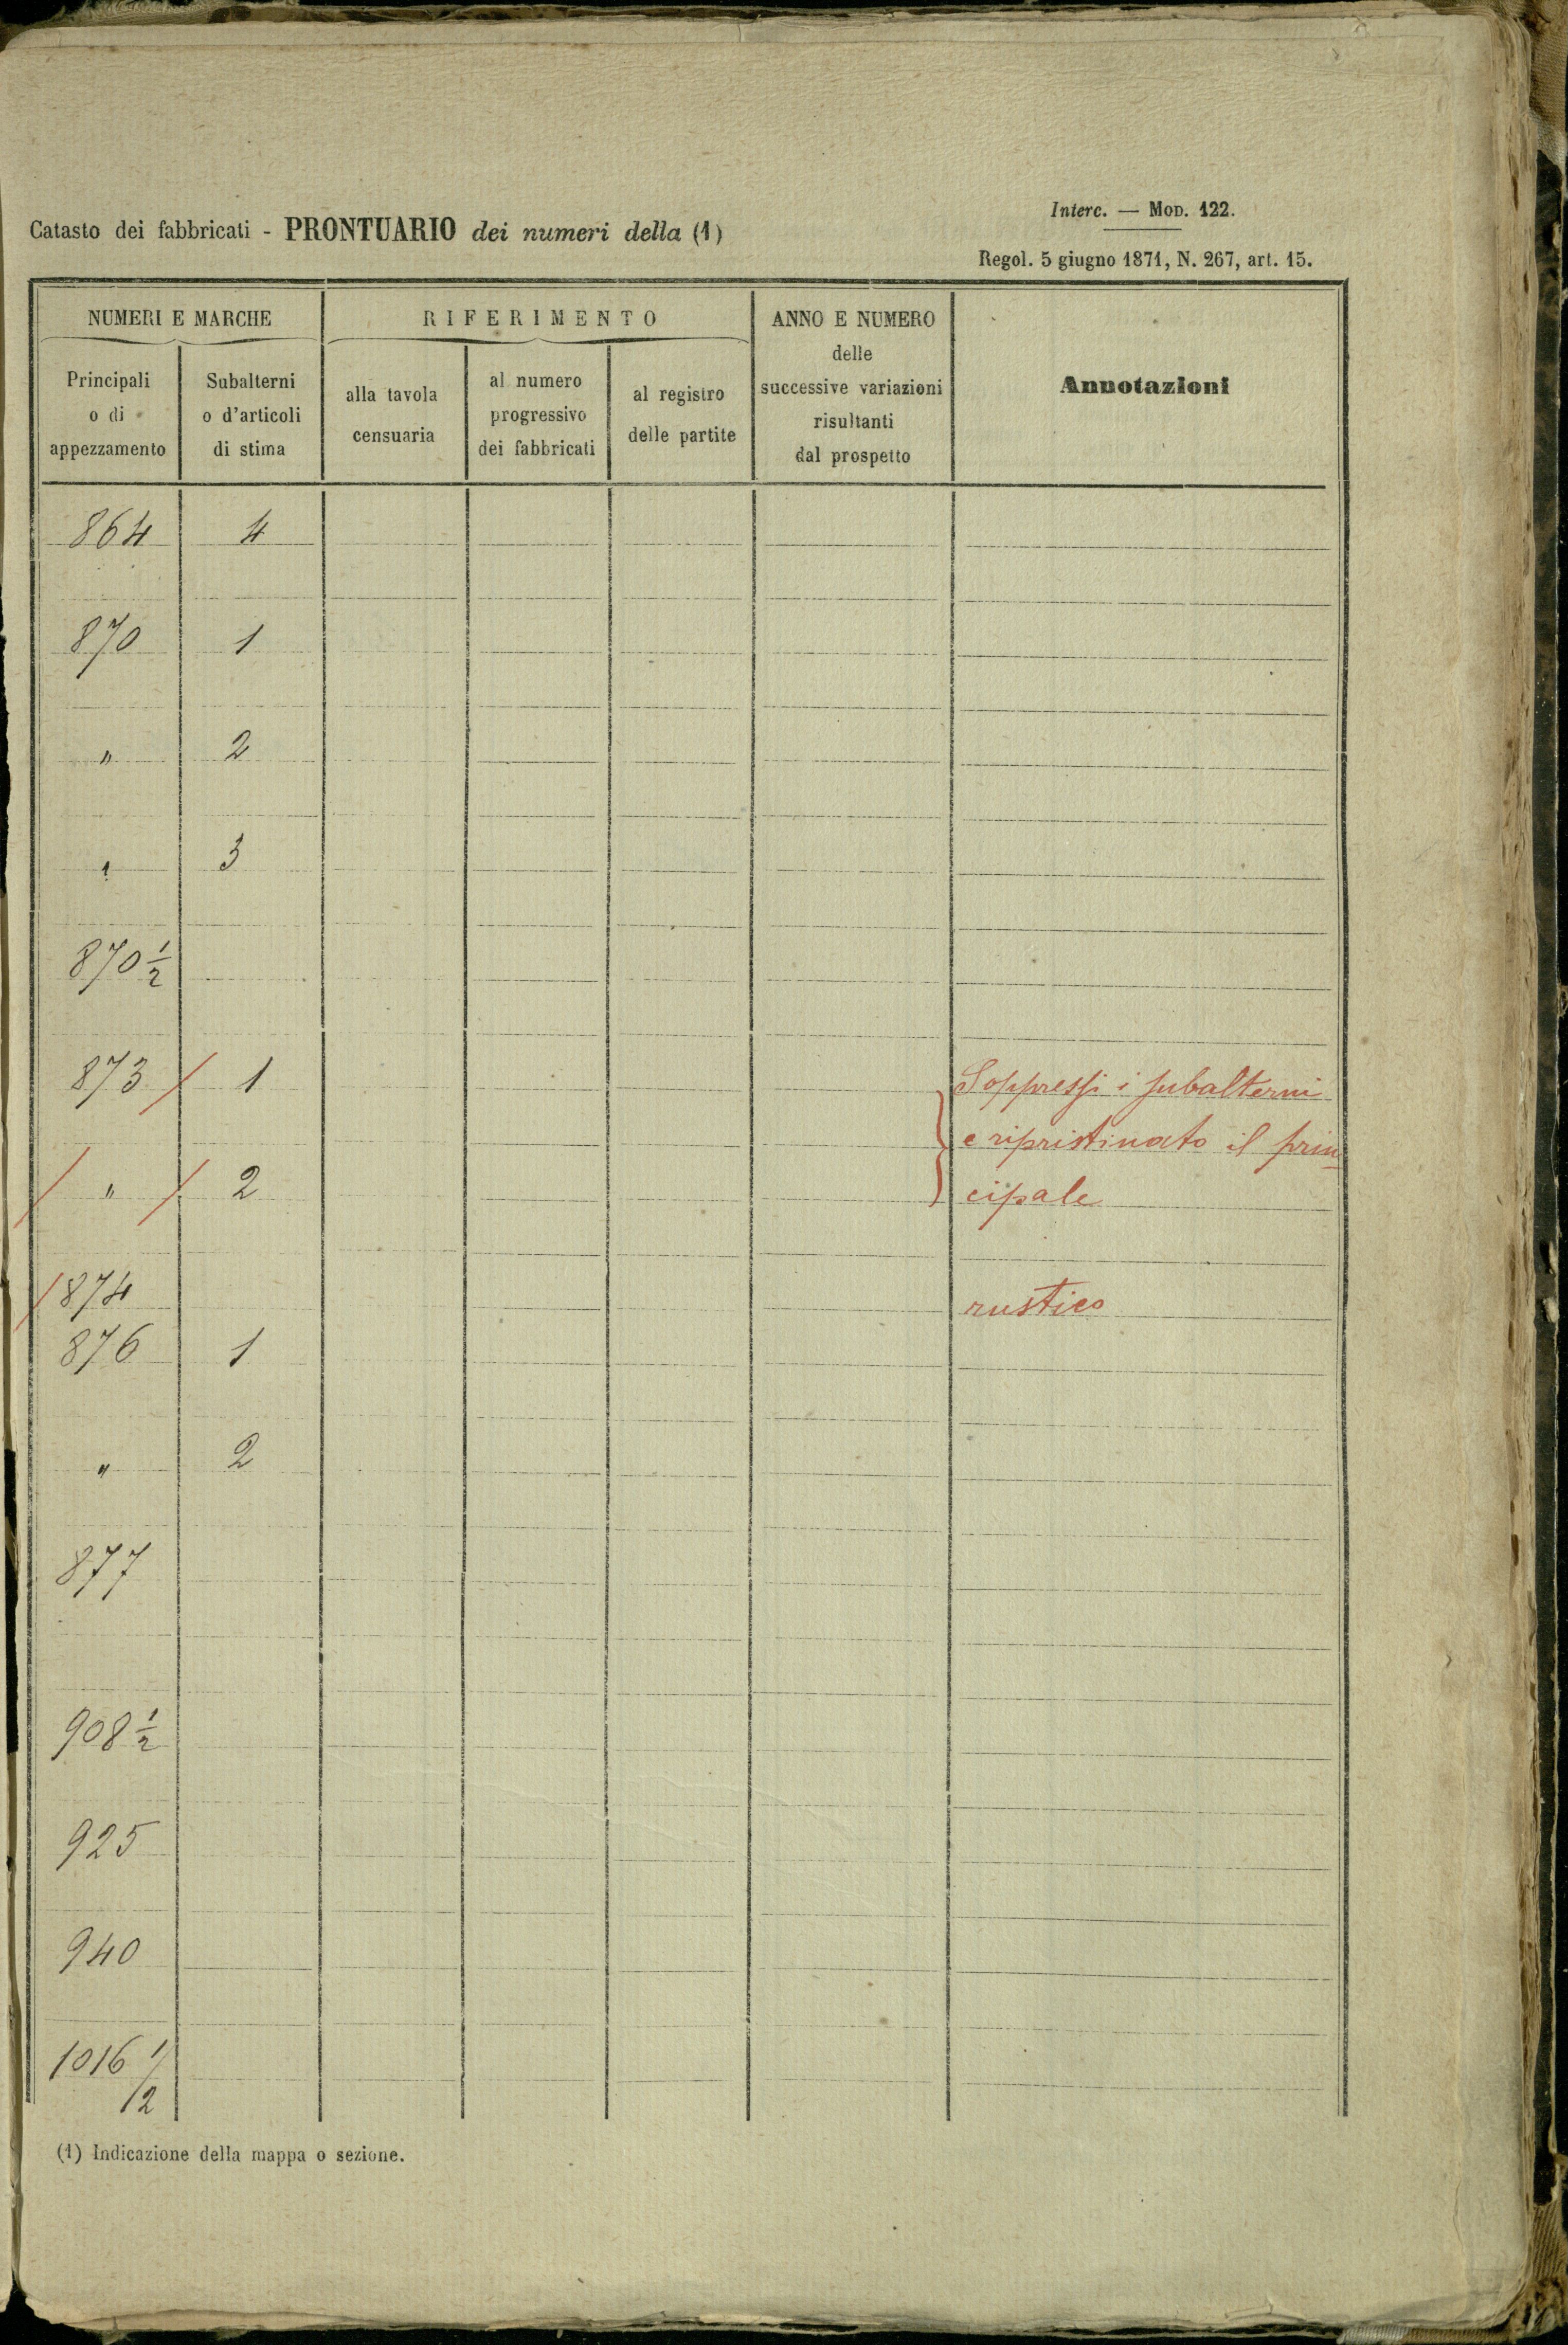 Interc. — MOD. 122.
Catasto dei fabbricati - PRONTUARIO dei numeri della (1)
Regol. 5 giugno 1871, N. 267, art. 15.
NUMERI E MARCHE
RIFERIMENTO
ANNO E NUMERO
delle
successive variazioni
risultanti
dal prospetto
Annotazioni
Principali
o di
appezzamento
Subalterni
o d'articoli
di stima
alla tavola
censuaria
al numero
progressivo
dei fabbricati
al registro
delle partite
864 4
870 1
" 2
" 3
870 1/2
873 / 1 Soppressi i subalterni
e ripristinato il prin-
/ " / 2 cipale
/ 874 rustico
876 1
" 2
877
908 1/2
925
940
1016 1/2
(1) Indicazione della mappa o sezione.